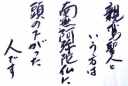 親鸞聖人と
いう方は
南無阿弥陀仏に
頭が下がった
人です